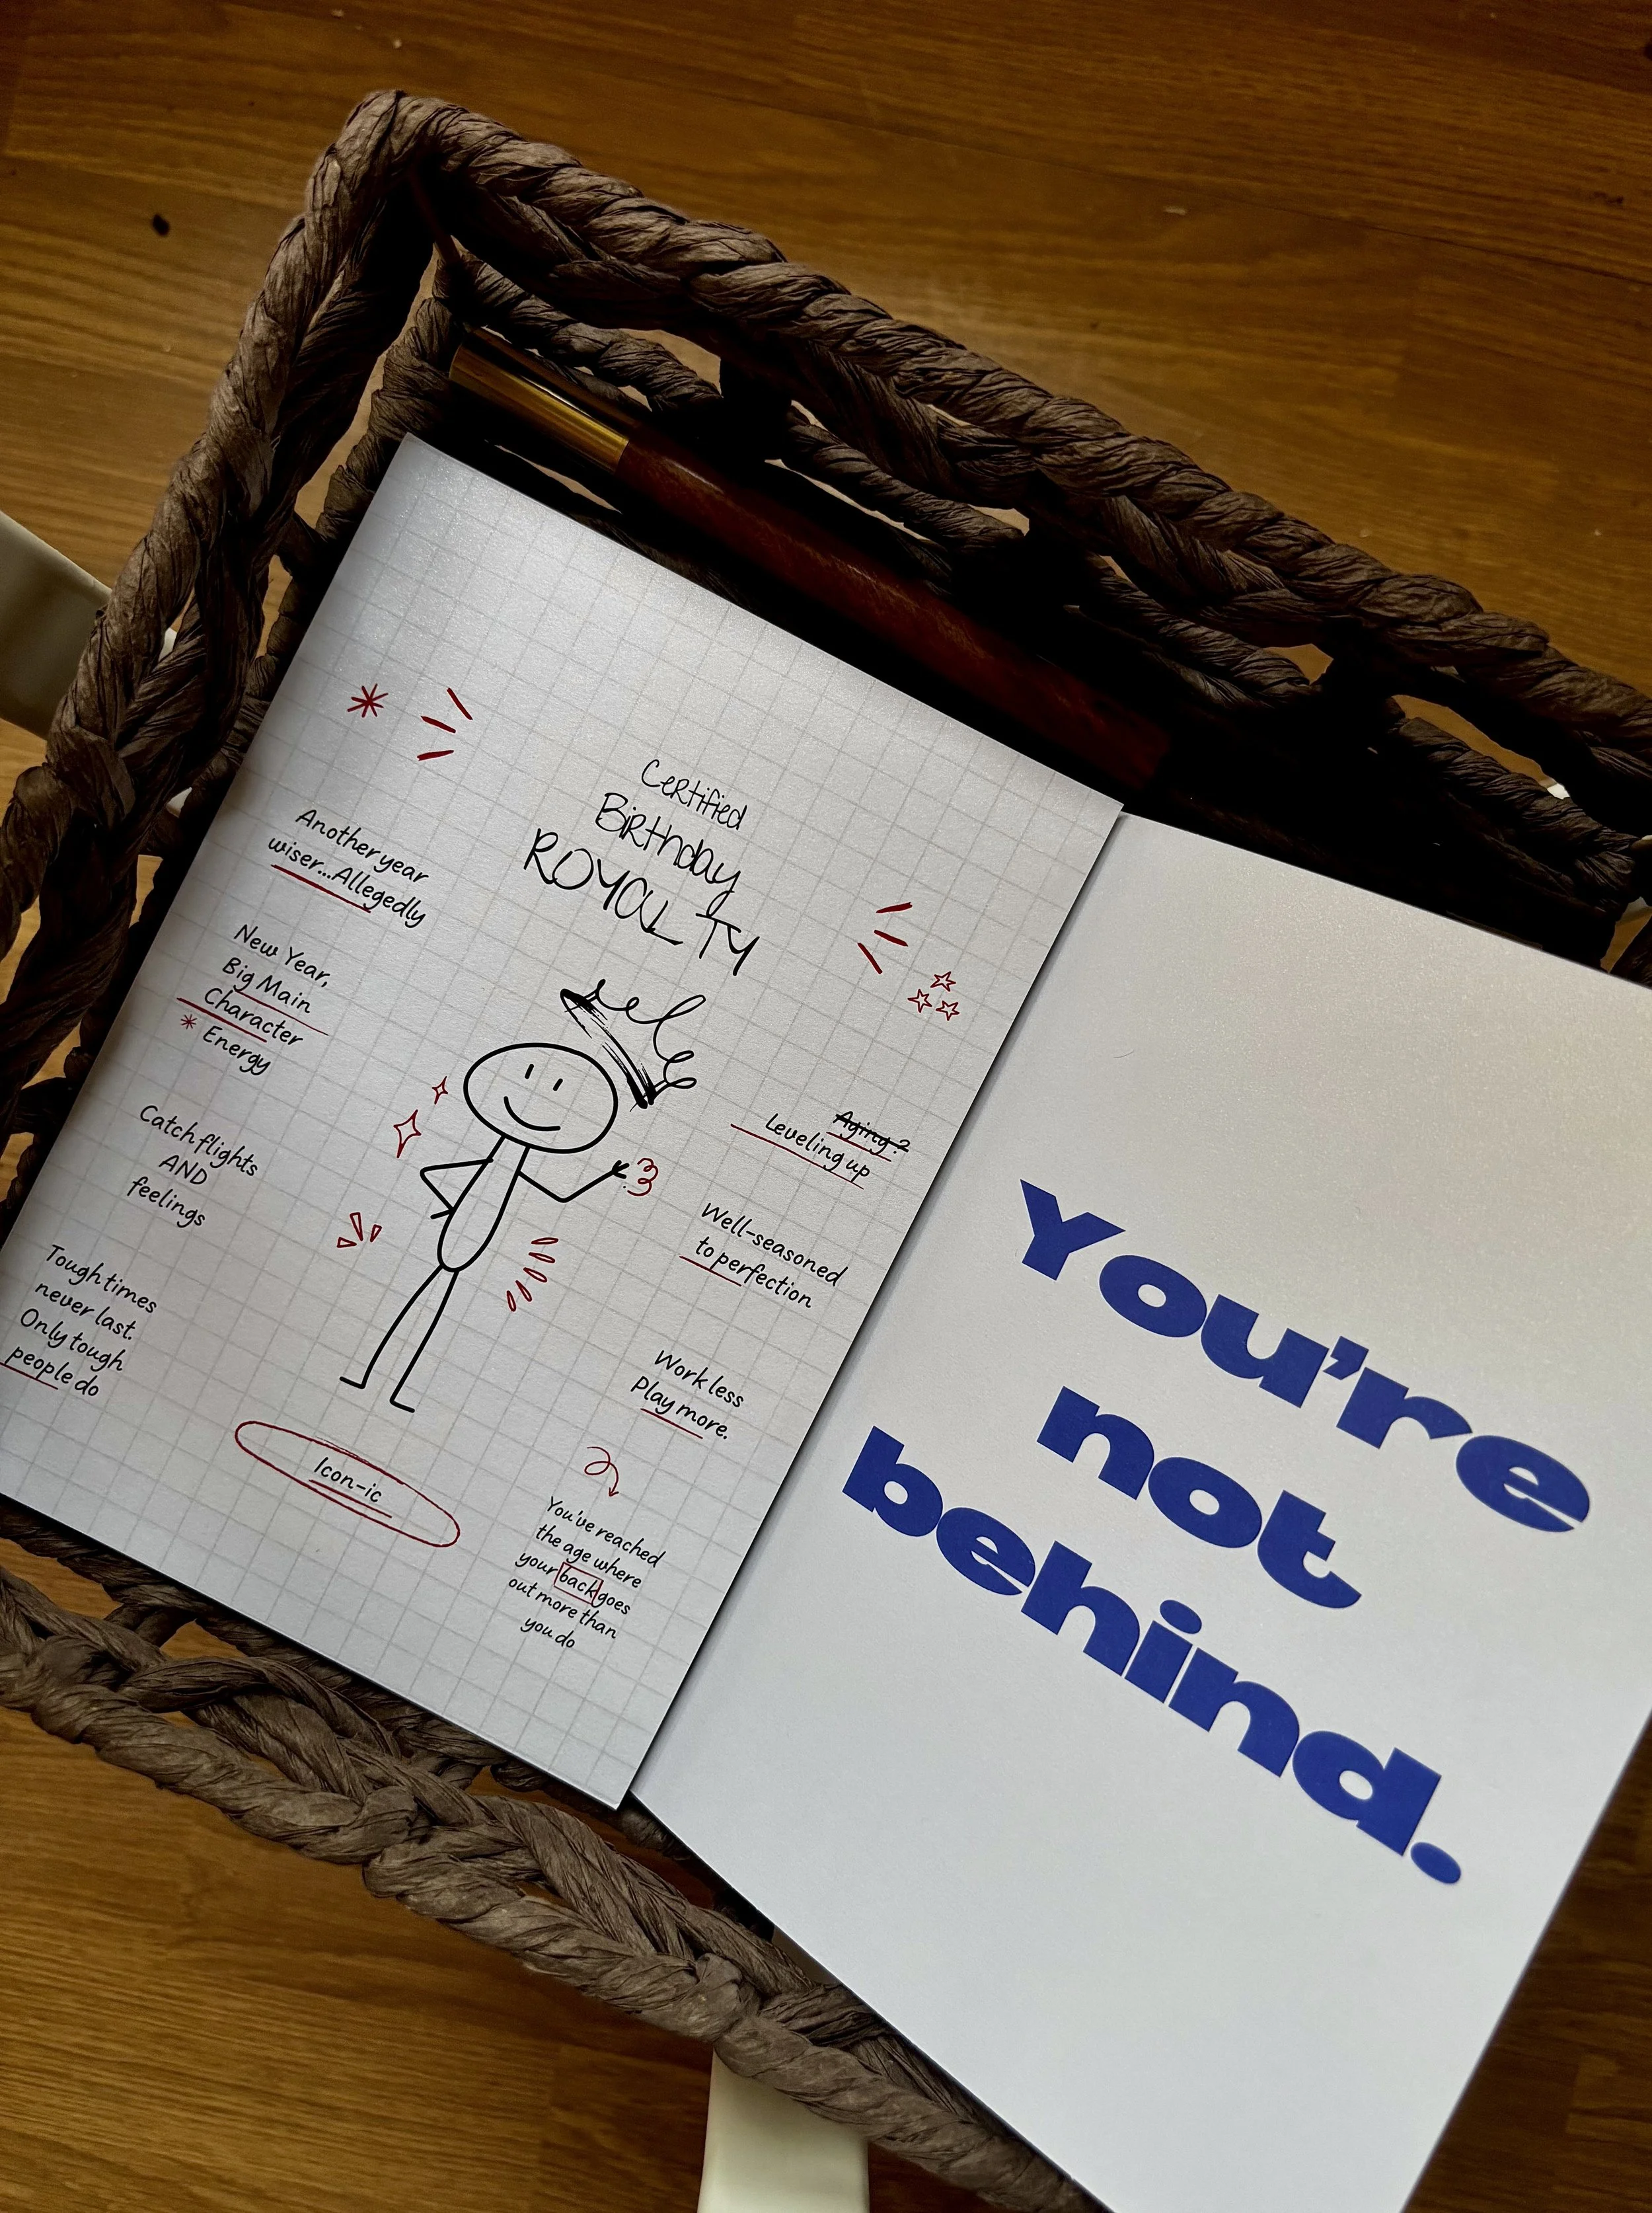 Certified
Birthday
ROYALTY
Another year
wiser...Allegedly
New Year,
Big Main
Character
Energy
Catch flights
AND
feelings
Tough times
never last.
Only tough
people do
Icon-ic
Aging?
Leveling up
Well-seasoned
to perfection
Work less
Play more.
You've reached
the age where
your back goes
out more than
you do
You're
not
behind.